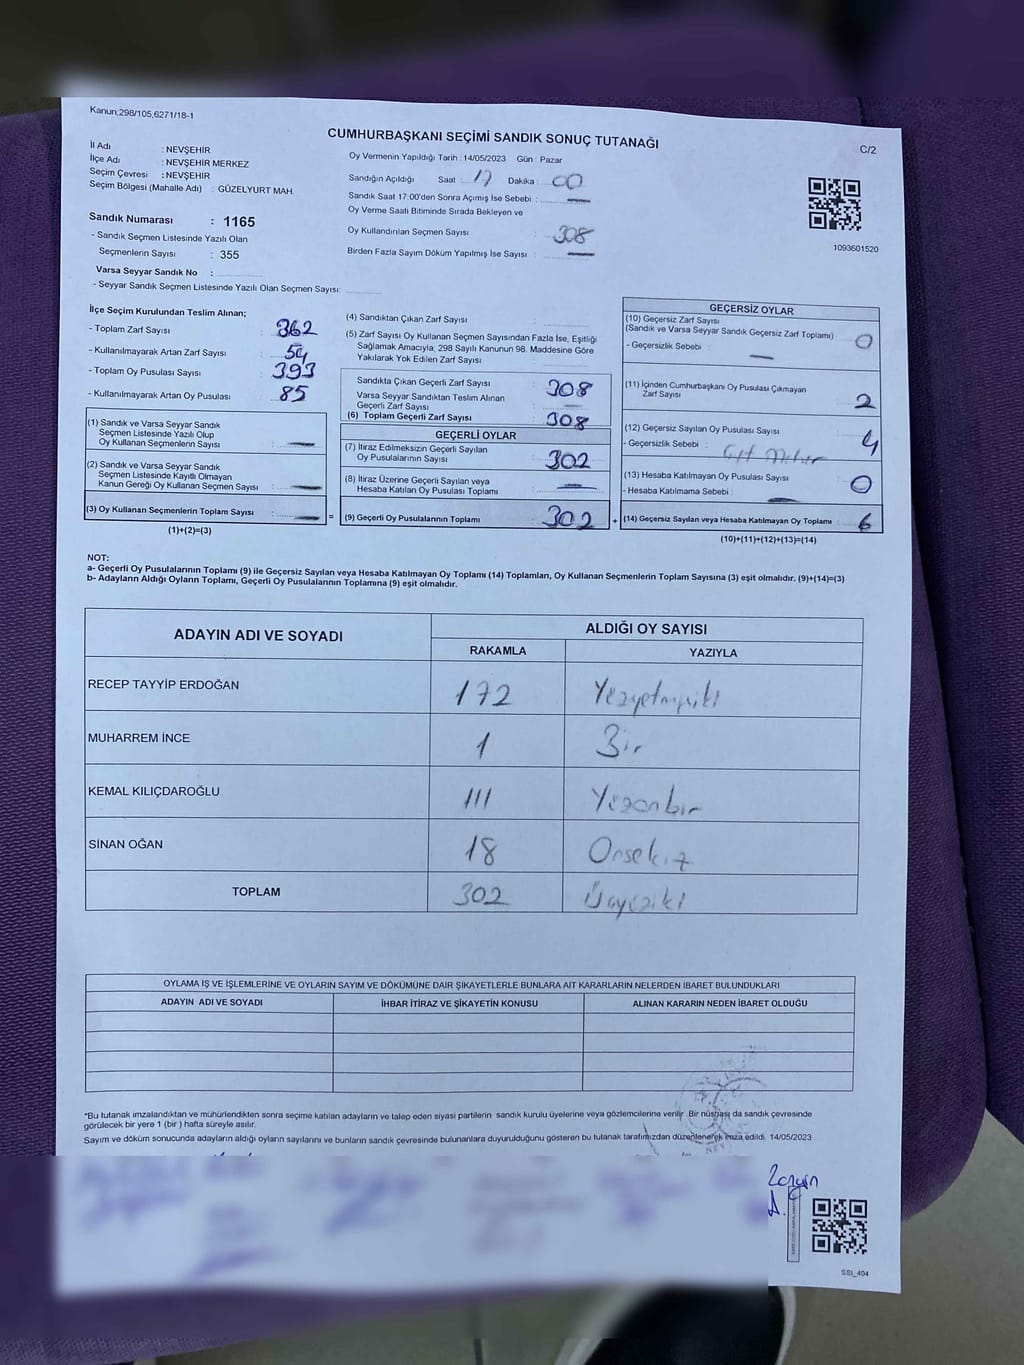 Kanun;298/105,6271/18-1
CUMHURBAŞKANI SEÇİMİ SANDIK SONUÇ TUTANAĞI
C/2
İl Adı : NEVŞEHİR
İlçe Adı : NEVŞEHİR MERKEZ
Seçim Çevresi : NEVŞEHİR
Seçim Bölgesi (Mahalle Adı) : GÜZELYURT MAH.
Sandık Numarası : 1165
- Sandık Seçmen Listesinde Yazılı Olan
Seçmenlerin Sayısı : 355
Varsa Seyyar Sandık No :
- Seyyar Sandık Seçmen Listesinde Yazılı Olan Seçmen Sayısı:
Oy Vermenin Yapıldığı Tarih : 14/05/2023 Gün : Pazar
Sandığın Açıldığı Saat : 17 Dakika : 00
Sandık Saat 17:00'den Sonra Açımış İse Sebebi : —
Oy Verme Saati Bitiminde Sırada Bekleyen ve
Oy Kullandırılan Seçmen Sayısı : 308
Birden Fazla Sayım Döküm Yapılmış İse Sayısı : —
1093601520
İlçe Seçim Kurulundan Teslim Alınan;
- Toplam Zarf Sayısı : 362
- Kullanılmayarak Artan Zarf Sayısı : 54
- Toplam Oy Pusulası Sayısı : 393
- Kullanılmayarak Artan Oy Pusulası : 85
(1) Sandık ve Varsa Seyyar Sandık
Seçmen Listesinde Yazılı Olup
Oy Kullanan Seçmenlerin Sayısı : —
(2) Sandık ve Varsa Seyyar Sandık
Seçmen Listesinde Kayıtlı Olmayan
Kanun Gereği Oy Kullanan Seçmen Sayısı : —
(3) Oy Kullanan Seçmenlerin Toplam Sayısı : — =
(1)+(2)=(3)
(4) Sandıktan Çıkan Zarf Sayısı :
(5) Zarf Sayısı Oy Kullanan Seçmen Sayısından Fazla İse, Eşitliği
Sağlamak Amacıyla; 298 Sayılı Kanunun 98. Maddesine Göre
Yakılarak Yok Edilen Zarf Sayısı :
Sandıkta Çıkan Geçerli Zarf Sayısı : 308
Varsa Seyyar Sandıktan Teslim Alınan
Geçerli Zarf Sayısı : —
(6) Toplam Geçerli Zarf Sayısı : 308
GEÇERLİ OYLAR
(7) İtiraz Edilmeksizin Geçerli Sayılan
Oy Pusulalarının Sayısı : 302
(8) İtiraz Üzerine Geçerli Sayılan veya
Hesaba Katılan Oy Pusulası Toplamı : —
(9) Geçerli Oy Pusulalarının Toplamı : 302 +
GEÇERSİZ OYLAR
(10) Geçersiz Zarf Sayısı
(Sandık ve Varsa Seyyar Sandık Geçersiz Zarf Toplamı) : 0
- Geçersizlik Sebebi : —
(11) İçinden Cumhurbaşkanı Oy Pusulası Çıkmayan
Zarf Sayısı : 2
(12) Geçersiz Sayılan Oy Pusulası Sayısı : 4
- Geçersizlik Sebebi :
(13) Hesaba Katılmayan Oy Pusulası Sayısı : 0
- Hesaba Katılmama Sebebi : —
(14) Geçersiz Sayılan veya Hesaba Katılmayan Oy Toplamı : 6
(10)+(11)+(12)+(13)=(14)
NOT:
a- Geçerli Oy Pusulalarının Toplamı (9) ile Geçersiz Sayılan veya Hesaba Katılmayan Oy Toplamı (14) Toplamları, Oy Kullanan Seçmenlerin Toplam Sayısına (3) eşit olmalıdır. (9)+(14)=(3)
b- Adayların Aldığı Oyların Toplamı, Geçerli Oy Pusulalarının Toplamına (9) eşit olmalıdır.
ADAYIN ADI VE SOYADI
ALDIĞI OY SAYISI
RAKAMLA YAZIYLA
RECEP TAYYİP ERDOĞAN 172 Yüzyetmişiki
MUHARREM İNCE 1 Bir
KEMAL KILIÇDAROĞLU 111 Yüzonbir
SİNAN OĞAN 18 Onsekiz
TOPLAM 302 Üçyüziki
OYLAMA İŞ VE İŞLEMLERİNE VE OYLARIN SAYIM VE DÖKÜMÜNE DAİR ŞİKAYETLERLE BUNLARA AİT KARARLARIN NELERDEN İBARET BULUNDUKLARI
ADAYIN ADI VE SOYADI İHBAR İTİRAZ VE ŞİKAYETİN KONUSU ALINAN KARARIN NEDEN İBARET OLDUĞU
*Bu tutanak imzalandıktan ve mühürlendikten sonra seçime katılan adayların ve talep eden siyasi partilerin sandık kurulu üyelerine veya gözlemcilerine verilir. Bir nüshası da sandık çevresinde
görülecek bir yere 1 (bir ) hafta süreyle asılır.
Sayım ve döküm sonucunda adayların aldığı oyların sayılarını ve bunların sandık çevresinde bulunanlara duyurulduğunu gösteren bu tutanak tarafımızdan düzenlenerek imza edildi. 14/05/2023
SSI_404